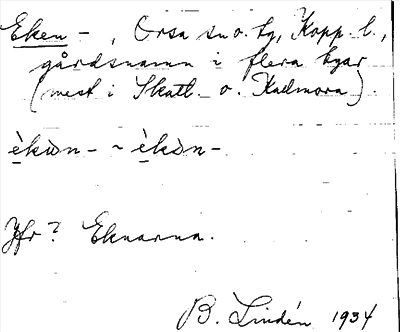 Eken - , Orsa sn o. tg, Kopp. l.,
gårdsnamn i flera byar
(mest i Skattl. o. Kallmora).
èkɯn - ~ èkǝ̀n -
Jfr? Eknarna.
B. Lindén 1934